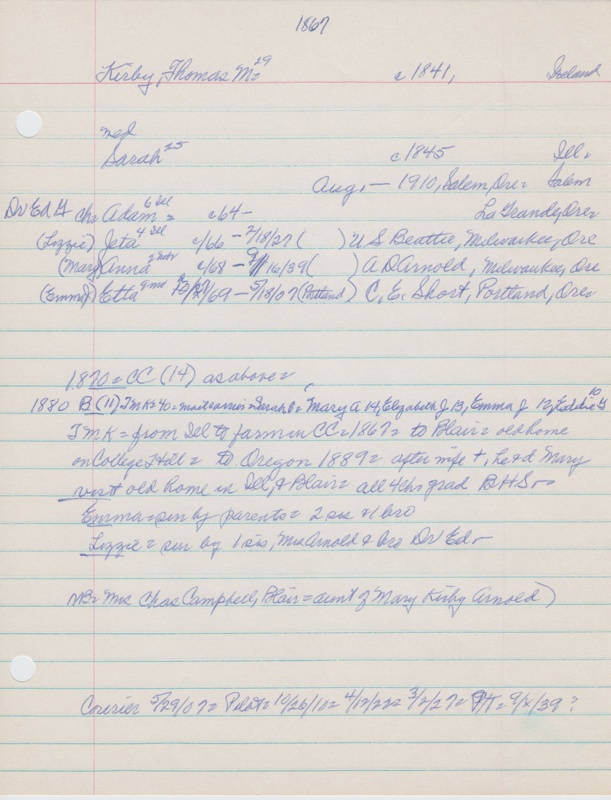 1867
Kirby, Thomas M= 29 c1841, Ireland
med
Sarah 25 c1845 Ill.
Aug. — 1910, Salem, Ore= Salem
Dr Ed G ch= Adam 6 Ill = c64 — La Grande, Ore=
(Lizzie) Jeta 4 Ill c/66 — 2/18/27 ( ) U S Beattie, Milwaukee, Ore
(Mary) Anna 2 c/68 — 16/39 ( ) A D Arnold, Milwaukee, Ore
(Emma J) Etta /69 — 5/18/07 (Portland) C. E. Short, Portland, Ore=
1870= CC (14) as above=
1880 B (11) TMK= 40= mail carrier= Sarah = Mary A 14, Elizabeth J 13, Emma J 12, Eddie G 10
TMK= from Ill to farm in CC= 1867= to Blair= old home
on College Hill= to Oregon 1889= after wife +, he & d Mary
visit old home in Ill, & Blair= all 4 ch= grad BHS—
Emma= sur by parents= 2 sis & 1 bro
Lizzie= sur by 1 sis, Mrs Arnold & bro Dr Ed—
NB= Mrs Chas Campbell, Blair= aunt of Mary Kirby Arnold)
Courier 5/29/07= Pilot= 10/26/10= 4/12/22= 3/2/27= PT= 9/x/39?